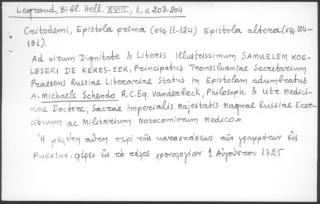 Legrand, Bibl. Hell. XVIII, 1, σ 203-204
Critodemi, Epistola prima (σσ 11-124) Epistola altera (σσ 124-
Ad virum Dignitate & Literis Illustrissimum SAMUELEM KOE-
LESERI DE KERES-EER, Principatus Transilvaniae Secretarium
Praesens Russiae Literariae Status in Epistolam adumbratus
A. Michaele Schendo R.C. Eq. Vanderbech, Philosoph. & utr. Medici-
nae Doctore, Sacrae Imperialis Majestatis magnae Russiae Exer-
cituum ac Militarium Nosocomiorum Medico.
Ἡ μελέτη αὕτη περὶ τῆς καταστάσεως τῶν γραμμάτων εἰς
φέρει εἰς τὸ τέλος χρονολογίαν 1 Αὐγούστου 1725